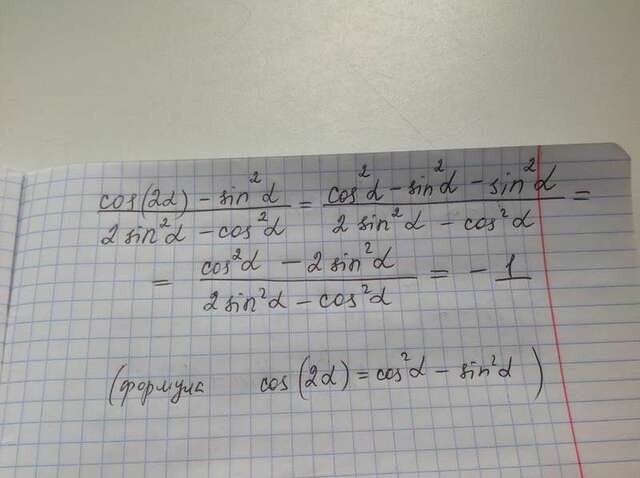 cos(2α) - sin²α / 2 sin²α - cos²α = cos²α - sin²α - sin²α / 2 sin²α - cos²α =
= cos²α - 2 sin²α / 2 sin²α - cos²α = - 1
(формула cos(2α) = cos²α - sin²α)